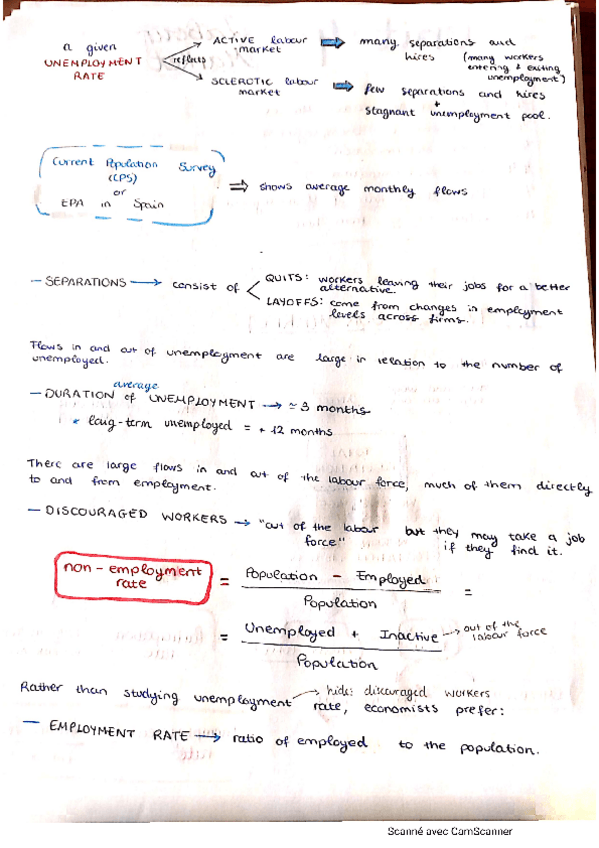 a given
UNEMPLOYMENT
RATE
reflects
ACTIVE labour
market
many separations and
hires (many workers
entering & exiting
unemployment)
SCLEROTIC labour
market
few separations and hires
+
stagnant unemployment pool.
Current Population Survey
(CPS)
or
EPA in Spain
⇒ shows average monthly flows
— SEPARATIONS → consist of
QUITS: workers leaving their jobs for a better
alternative.
LAYOFFS: come from changes in employment
levels across firms.
Flows in and out of unemployment are large in relation to the number of
unemployed.
average
— DURATION of UNEMPLOYMENT → ≈ 3 months
* long-term unemployed = + 12 months
There are large flows in and out of the labour force, much of them directly
to and from employment.
— DISCOURAGED WORKERS → "out of the labour but they may take a job
force" if they find it.
non-employment
rate
= Population - Employed =
Population
= Unemployed + Inactive → out of the
labour force
Population
→ hide: discouraged workers
Rather than studying unemployment rate, economists prefer:
— EMPLOYMENT RATE → ratio of employed to the population.
Scanné avec CamScanner